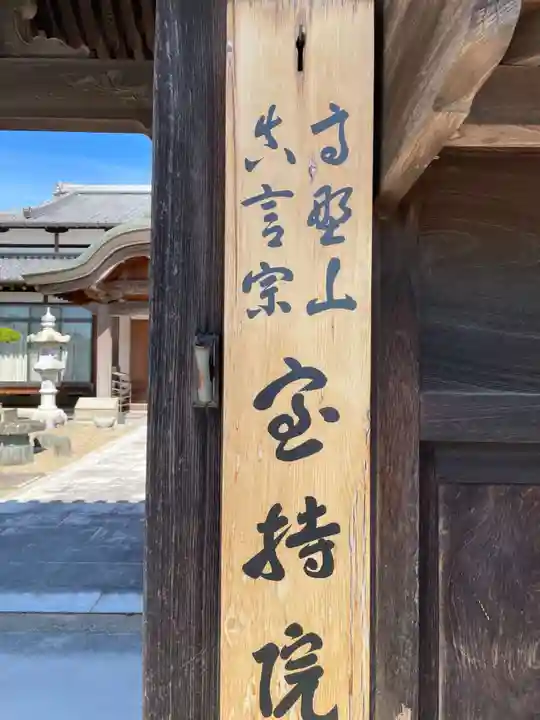 高野山
真言宗
宝持院